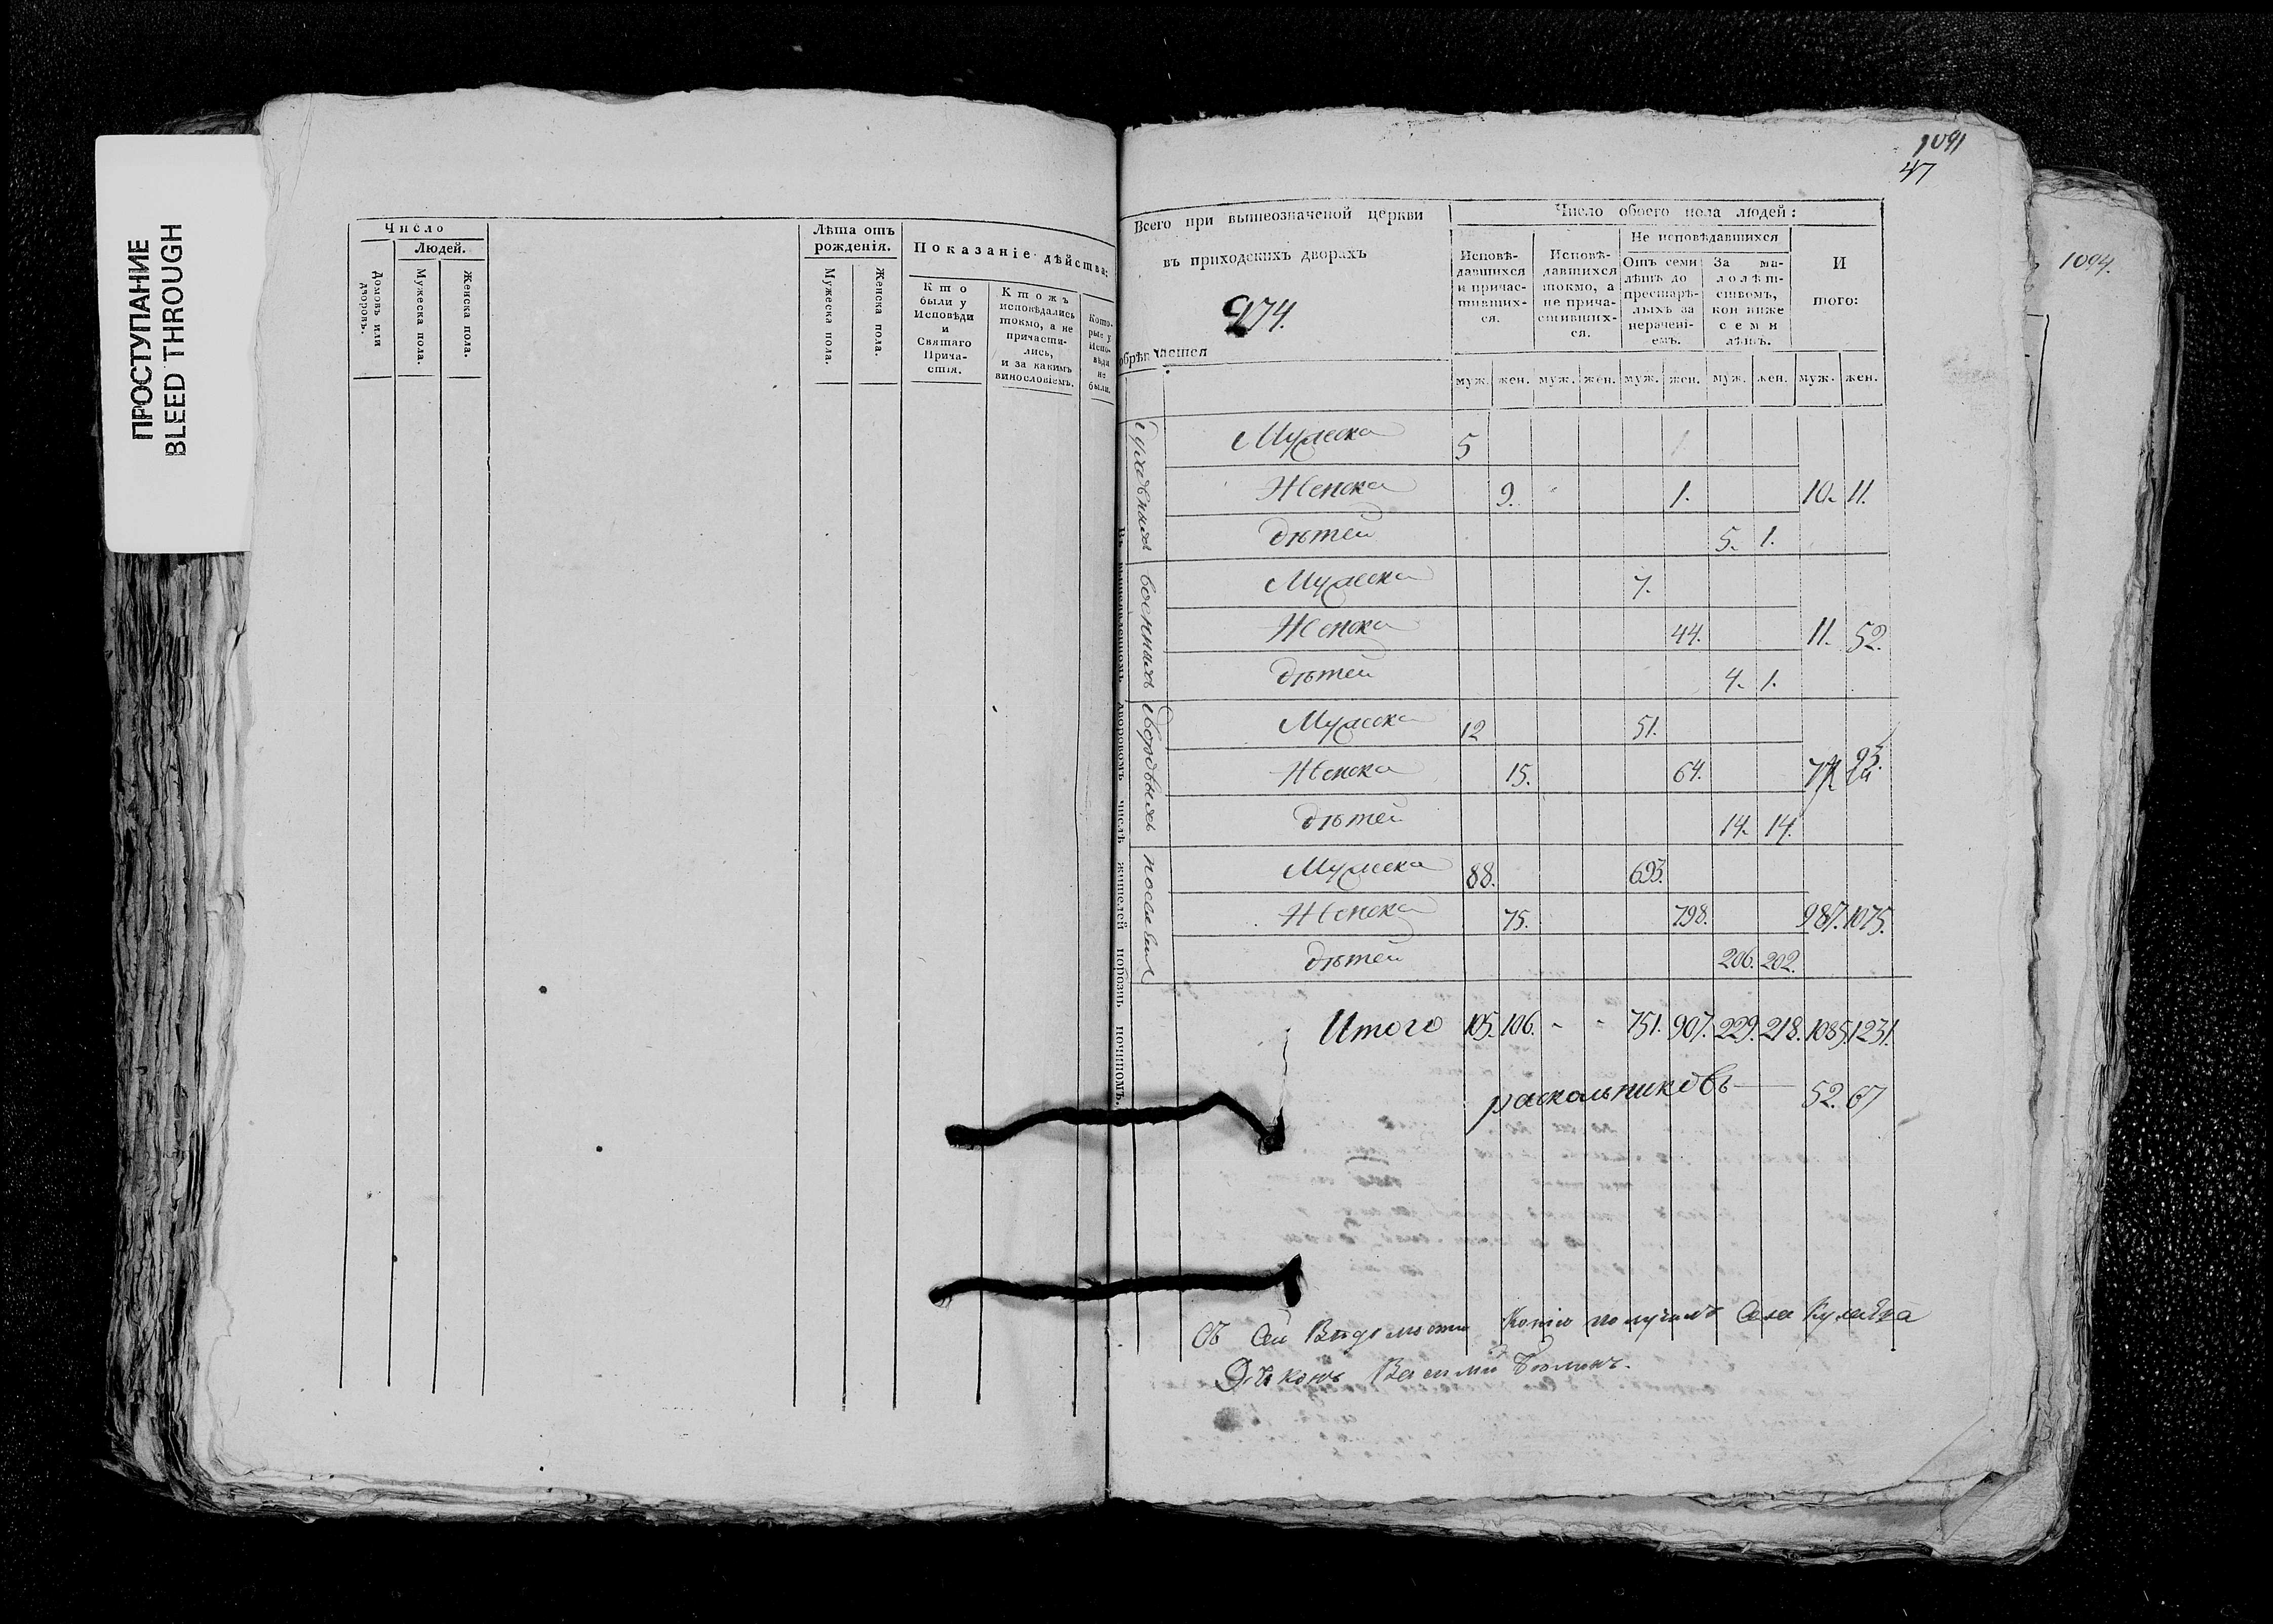 ПРОСТУПАНИЕ
BLEED THROUGH
Число
Людей.
Домовъ или дворовъ.
Мужеска пола.
Женска пола.
Лѣта отъ
рожденія.
Мужеска пола.
Женска пола.
Показаніе дѣйства:
Кто
были у
Исповѣди
и
Святаго
Прича-
стія.
Ктожъ
исповѣдались
токмо, а не
причасти-
лись,
и за какимъ
винословіемъ.
Кото-
рые у
Испо-
вѣди
не
были.
1091
47
Всего при вышеозначеной церкви
въ приходскихъ дворахъ
274.
обрѣтается
Число обоего пола людей:
Исповѣ-
давшихся
и причас-
тивших-
ся.
Исповѣ-
давшихся
токмо, а
не прича-
стивших-
ся.
Не исповѣдавшихся
Отъ семи
лѣтъ до
престарѣ-
лыхъ за
нерачені-
емъ.
За ма-
лолѣт-
ствомъ,
кои ниже
семи
лѣтъ.
И
того:
муж. жен. муж. жен. муж. жен. муж. жен. муж. жен.
Въ вышеявленномъ дворовомъ числѣ жителей порознь чиномъ.
Духовныхъ
Мужеска 5
Женска 9. 1. 10. 11.
дѣтей 5. 1.
военныхъ
Мужеска 7.
Женска 44. 11. 52.
дѣтей 4. 1.
дворовыхъ
Мужеска 12 51.
Женска 15. 64. 93.
дѣтей 14. 14.
Мужеска 88. 693.
Женска 75. 798. 987. 1075.
дѣтей 206. 202.
Итого 105. 106. - - 751. 907. 229. 218. 1085. 1231.
раскольниковъ — 52. 67
Съ сей Вѣдомости копію получилъ Села
Дьяконъ Василий
1094.